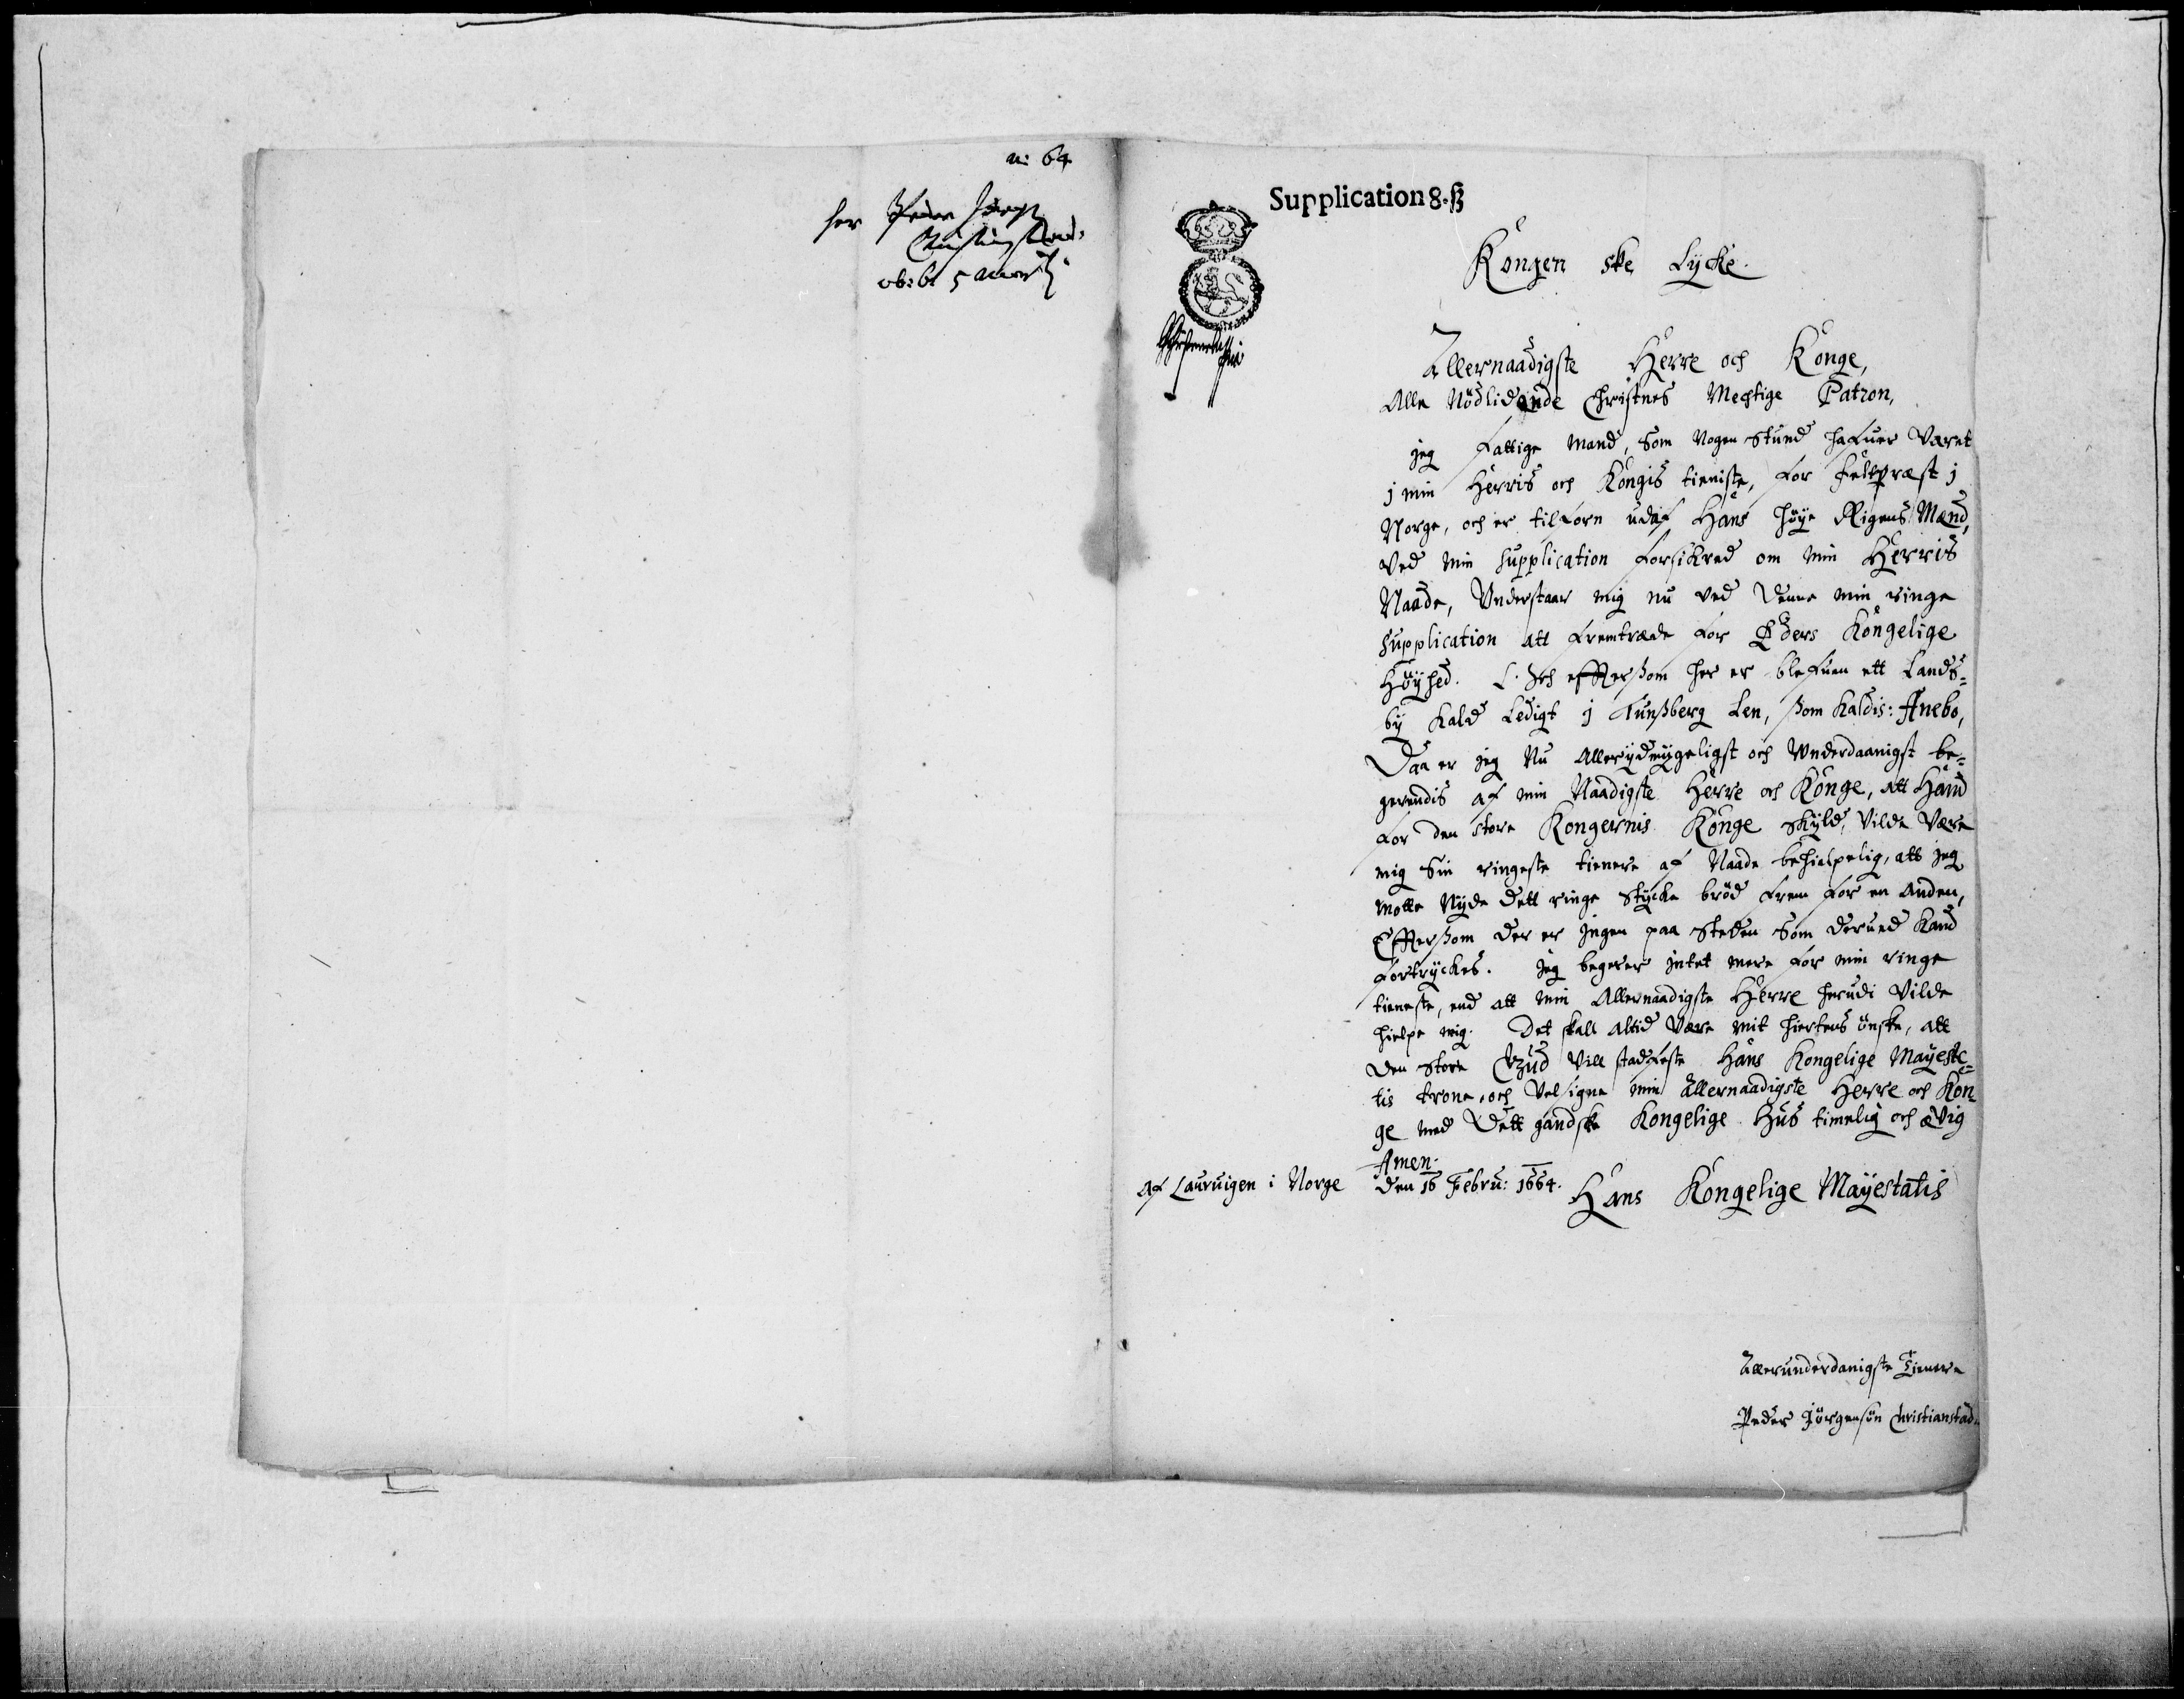 n: 64
her Peder
Supplication 8. ß
Kongen ske Lycke.
Allernaadigste Herre och Konge,
Alle Nödlidende Christnes Mechtige Patron,
jeg fattige Mand, Som Nogen Stund hafuer Været
j min Herris och Kongis tieniste, for feltpræst j
Norge, och er tilforn udaf Hans höye Rigens Mænd,
Ved min Supplication forsikred om min Herris
Naade, Understaar mig nu ved denne min ringe
Supplication att fremtræde for Eders Kongelige
Höyhed. Och effterßom her er blefuen ett Lands=
by kald Ledigt j Tunßberg Len, ßom kaldis: Anebo,
Daa er jeg Nu Allerydmygeligst och Underdaanigst be=
gerendis af min Naadigste Herre och Konge, att Hand
for den store Kongernis Konge skyld, Vilde Være
mig Sin ringeste tienere af Naade behielpelig, att jeg
motte Nyde dett ringe Stycke bröd frem for en Anden,
Effterßom der er jngen paa Steden Som derued kand
fortryckes. Jeg begerer jntet mere for min ringe
tieneste, end att min Allernaadigste Herre herudi Vilde
hielpe mig. Det skall altid Være mit hiertens önske, att
den Store Gud Vill stadfeste Hans Kongelige Mayeste=
tis trone, och Velsigne min Allernaadigste Herre och Kon
ge med dett gandske Kongelige Hus timelig och ævig
Amen.
Af Lauruigen i Norge den 16 Febru: 1664. Hans Kongelige Mayestatis
Allerunderdanigste Tienere
Peder Jörgensön Christianstad